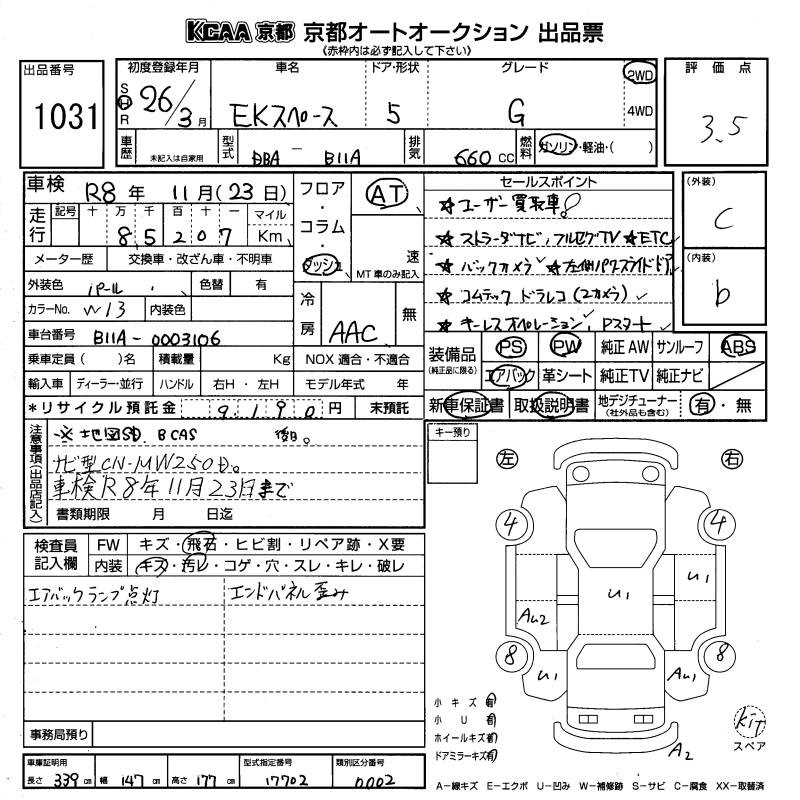 KCAA 京都 京都オートオークション 出品票
《赤枠内は必ず記入して下さい》
出品番号 1031
初度登録年月 S H R 26/3月 車名 EKスペース ドア・形状 5 グレード G 2WD 4WD
評価点 3.5
車歴 未記入は自家用 型式 DBA - B11A 排気 660 cc 燃料 ガソリン・軽油・( )
車検 R8年 11月(23日)
走行 記号 十 万 千 百 十 一 マイル
85207 Km
メーター歴 交換車・改ざん車・不明車
外装色 パール 色替 有
カラーNo. W13 内装色
車台番号 B11A - 0003106
乗車定員( )名 積載量 Kg NOX 適合・不適合
輸入車 ディーラー・並行 ハンドル 右H・左H モデル年式 年
*リサイクル預託金 9190円 末預託
フロア・コラム・ダッシュ AT 速 MT車のみ記入
冷房 AAC 無
セールスポイント
☆ユーザー買取車!
☆ストラーダナビ,フルセグTV ☆ETC
☆バックカメラ ☆左側パワースライドドア
☆コムテックドラレコ(2カメラ)
☆キーレスオペレーション, Pスタート
(外装) C
(内装) b
装備品 (純正品に限る) PS PW 純正AW サンルーフ ABS
エアバック 革シート 純正TV 純正ナビ
新車保証書 取扱説明書 地デジチューナー (社外品も含む) 有・無
注意事項(出品店記入)
※地図SD. BCAS 後日。
ナビ型CN-MW250D。
車検R8年11月23日まで
書類期限 月 日迄
検査員記入欄 FW キズ・飛石・ヒビ割・リペア跡・X要
内装 キズ・汚レ・コゲ・穴・スレ・キレ・破レ
エアバックランプ点灯 エンドパネル歪み
事務局預り
キー預り
左 右
4 4
U1 U1
AU2
8 8
U1 AU1
A2
小キズ 有
小U 有
ホイールキズ 有
ドアミラーキズ 有
kit
スペア
車庫証明用 長さ 339cm 幅 147cm 高さ 177cm 型式指定番号 17702 類別区分番号 0002
A-線キズ E-エクボ U-凹み W-補修跡 S-サビ C-腐食 XX-取替済